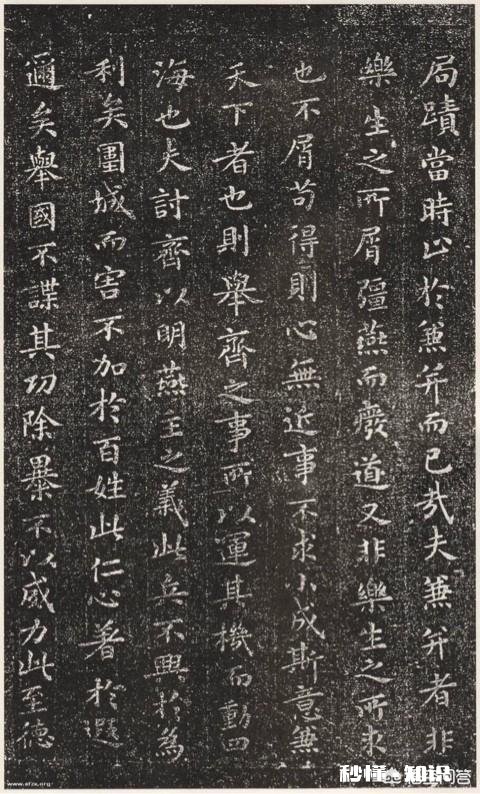 局蹟當時止於兼并而已哉夫兼并者非
樂生之所屑彊燕而癈道又非樂生之所求
也不屑苟得則心無近事不求小成斯意兼
天下者也則舉齊之事所以運其機而動四
海也夫討齊以明燕主之義此兵不興於為
利矣圍城而害不加於百姓此仁心著於遐
邇矣舉國不謀其功除暴不以威力此至德
秒懂·知识